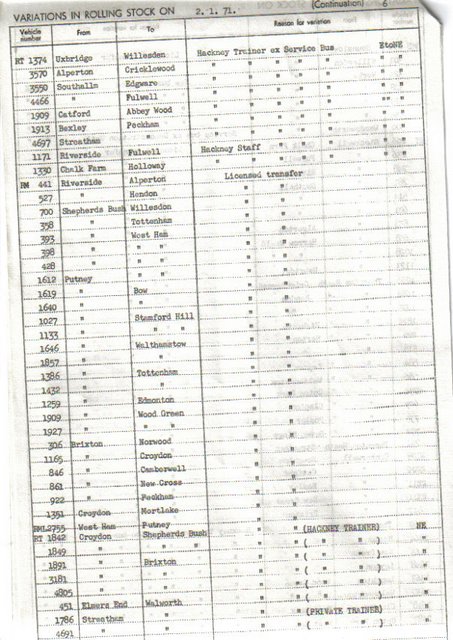 (Continuation) 6
VARIATIONS IN ROLLING STOCK ON 2.1.71.
Vehicle number From To Reason for variation
RT 1374 Uxbridge Willesden Hackney Trainer ex Service Bus EtoNE
3570 Alperton Cricklewood " " " " " "
3550 Southall Edgware " " " " " "
4466 " Fulwell " " " " " "
1909 Catford Abbey Wood " " " " " "
1913 Bexley Peckham " " " " " "
4697 Streatham " " " " " " "
1171 Riverside Fulwell Hackney Staff " " " " "
1330 Chalk Farm Holloway " " " " " "
RM 441 Riverside Alperton Licensed transfer
527 " Hendon " "
700 Shepherds Bush Willesden " "
358 " Tottenham " "
393 " West Ham " "
398 " " " "
428 " " " "
1612 Putney " " "
1619 " Bow "
1640 " " "
1027 " Stamford Hill "
1133 " " " "
1646 " Walthamstow "
1857 " " "
1386 " Tottenham "
1432 " " "
1259 " Edmonton "
1909 " Wood Green "
1927 " " "
306 Brixton Norwood "
1165 " Croydon "
846 " Camberwell "
861 " New Cross "
922 " Peckham "
1351 Croydon Mortlake "
RML2755 West Ham Putney "
RT 1842 Croydon Shepherds Bush " " (HACKNEY TRAINER) NE
1849 " " " " " ( " " ) "
1891 " Brixton " " ( " " ) "
3181 " " " " ( " " ) "
4805 " " " " ( " " ) "
451 Elmers End Walworth " " ( " " ) "
1786 Streatham " " " (PRIVATE TRAINER) "
4691 " " " " ( " " ) "